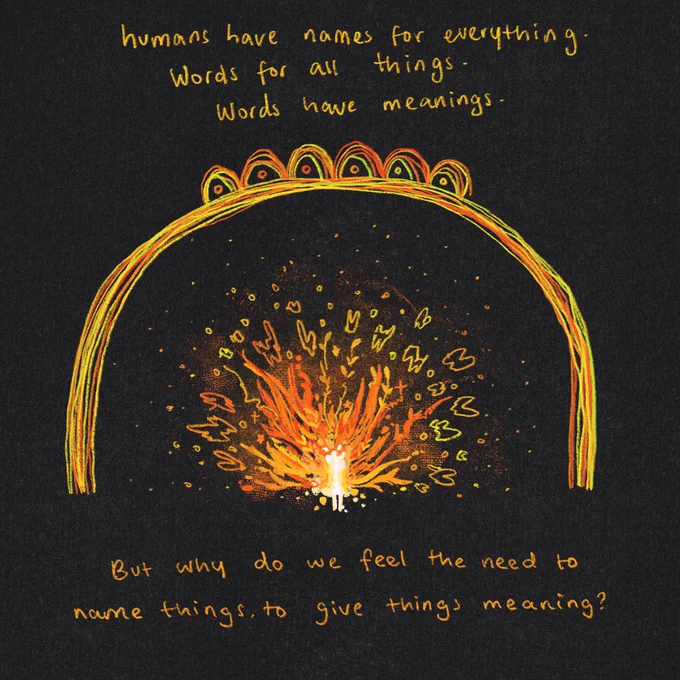 humans have names for everything.
Words for all things.
Words have meanings.
But why do we feel the need to
name things, to give things meaning?